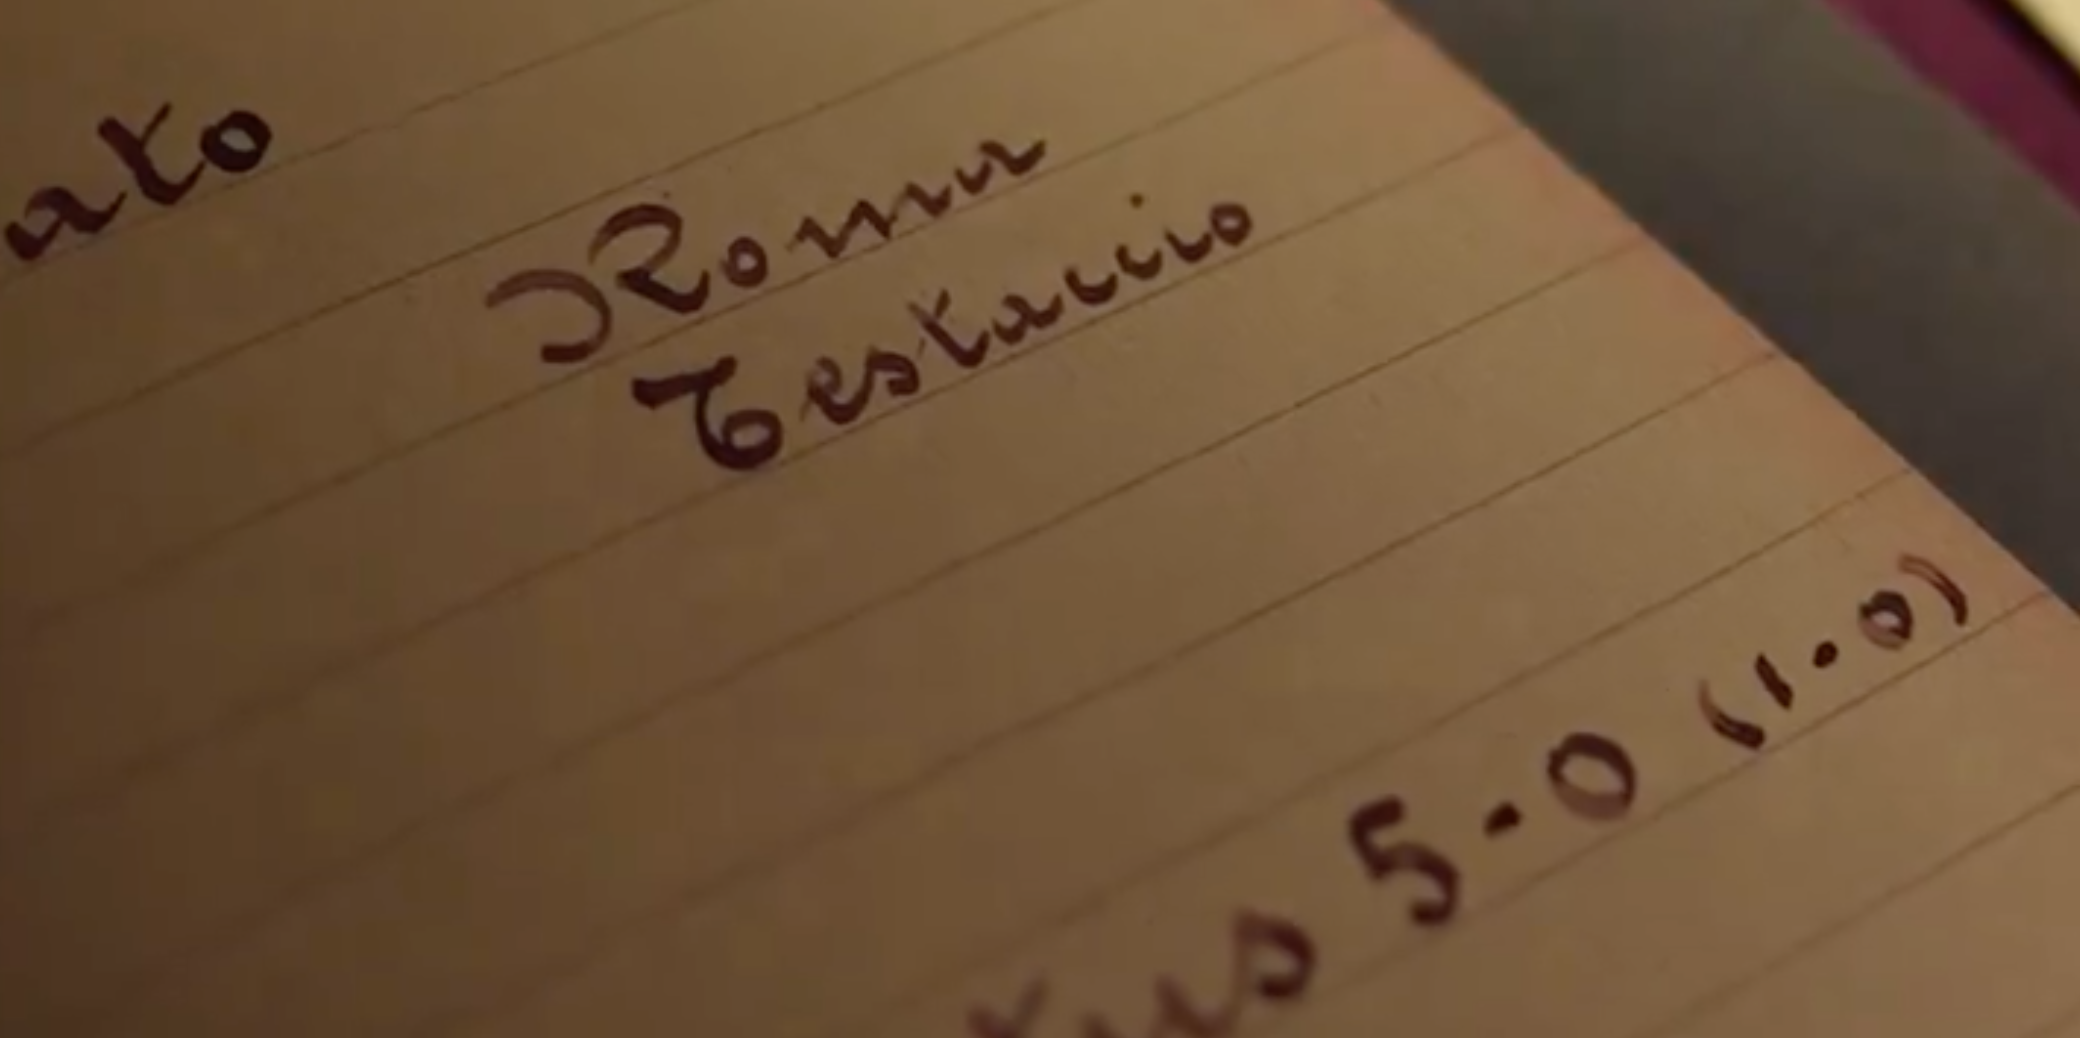 ato
Roma
Testaccio
5-0 (1-0)